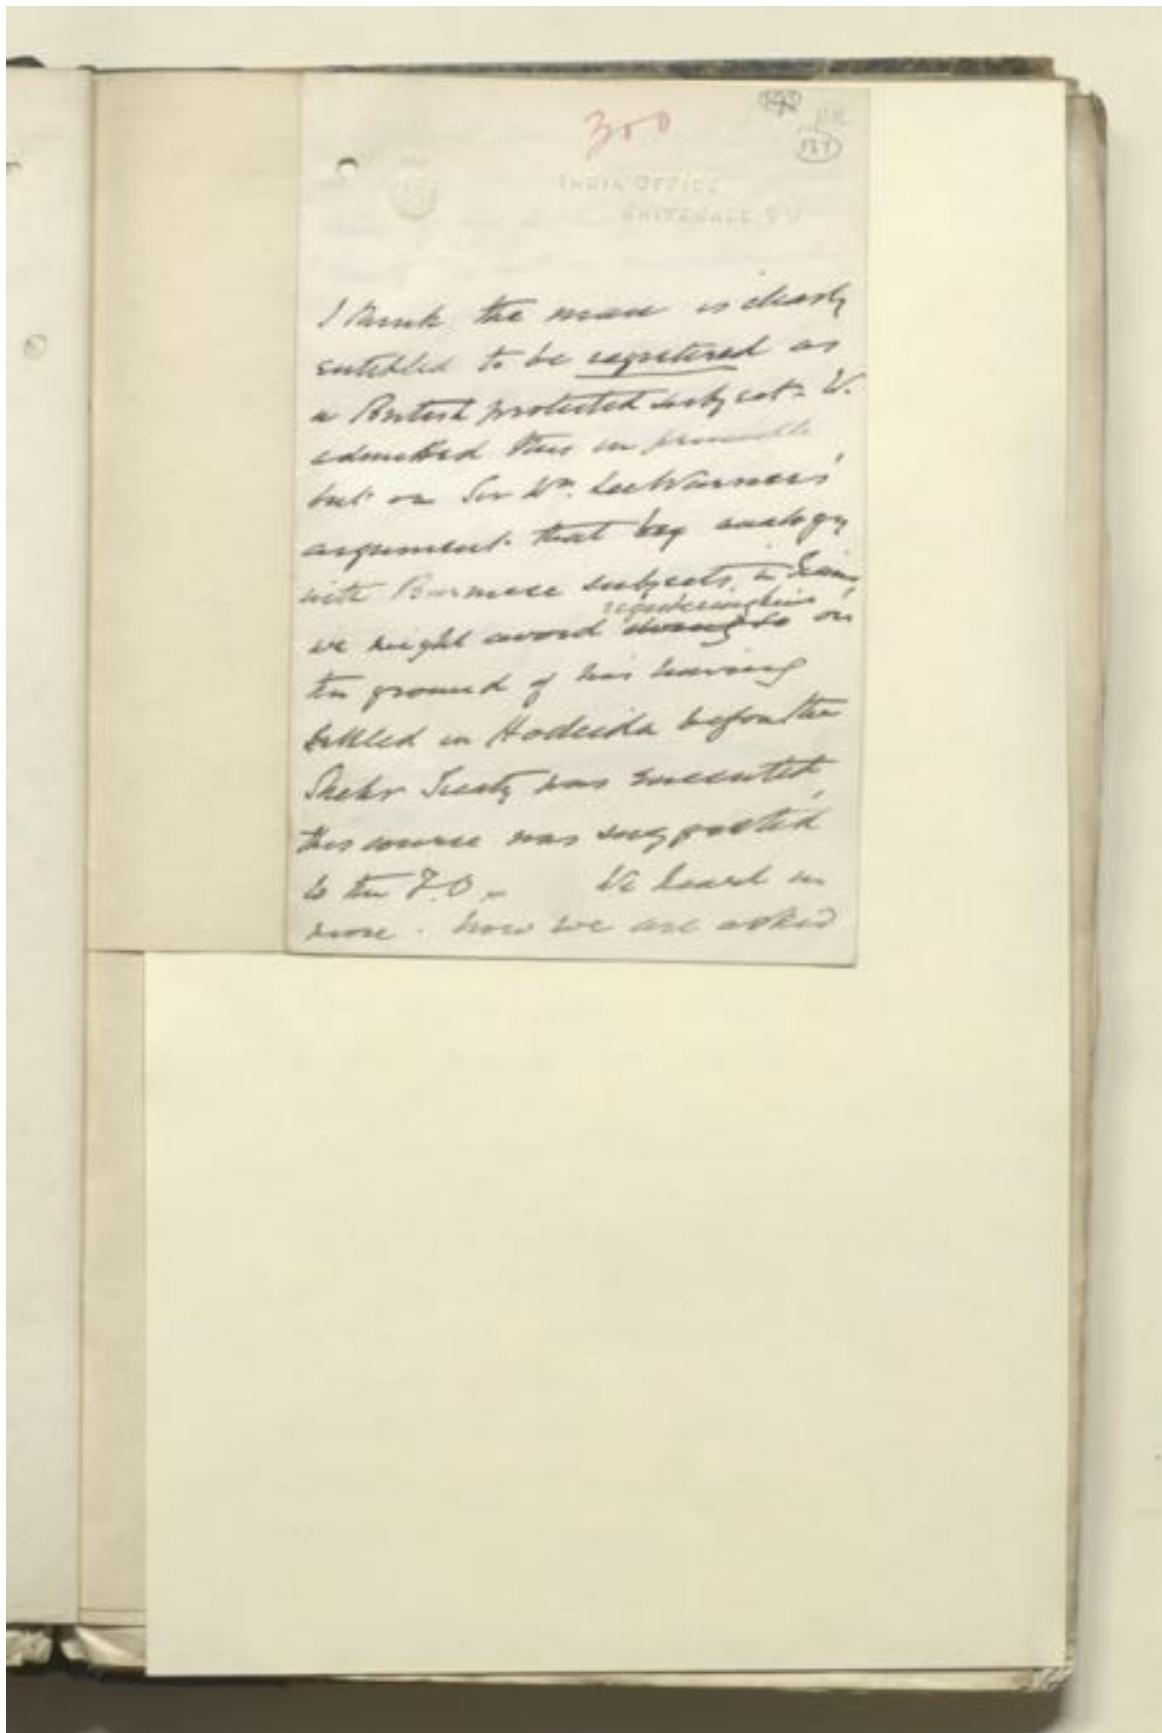 300
137
INDIA OFFICE
WHITEHALL S.W.
I think the man is clearly
entitled to be registered as
a British protected subject. We
admitted this in principle
but on Sir Wm. Lee Warner's
argument that by analogy
with Burmese subjects in Siam
we might avoid registering him on
the ground of his having
settled in Hodeida before the
Shehr Treaty was executed,
this course was suggested
to the F.O. We heard no
more. Now we are asked